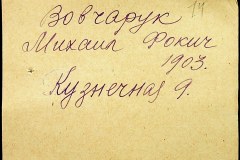 14
Вовчарук
Михаил Фокич
1903.
Кузнечная 9.